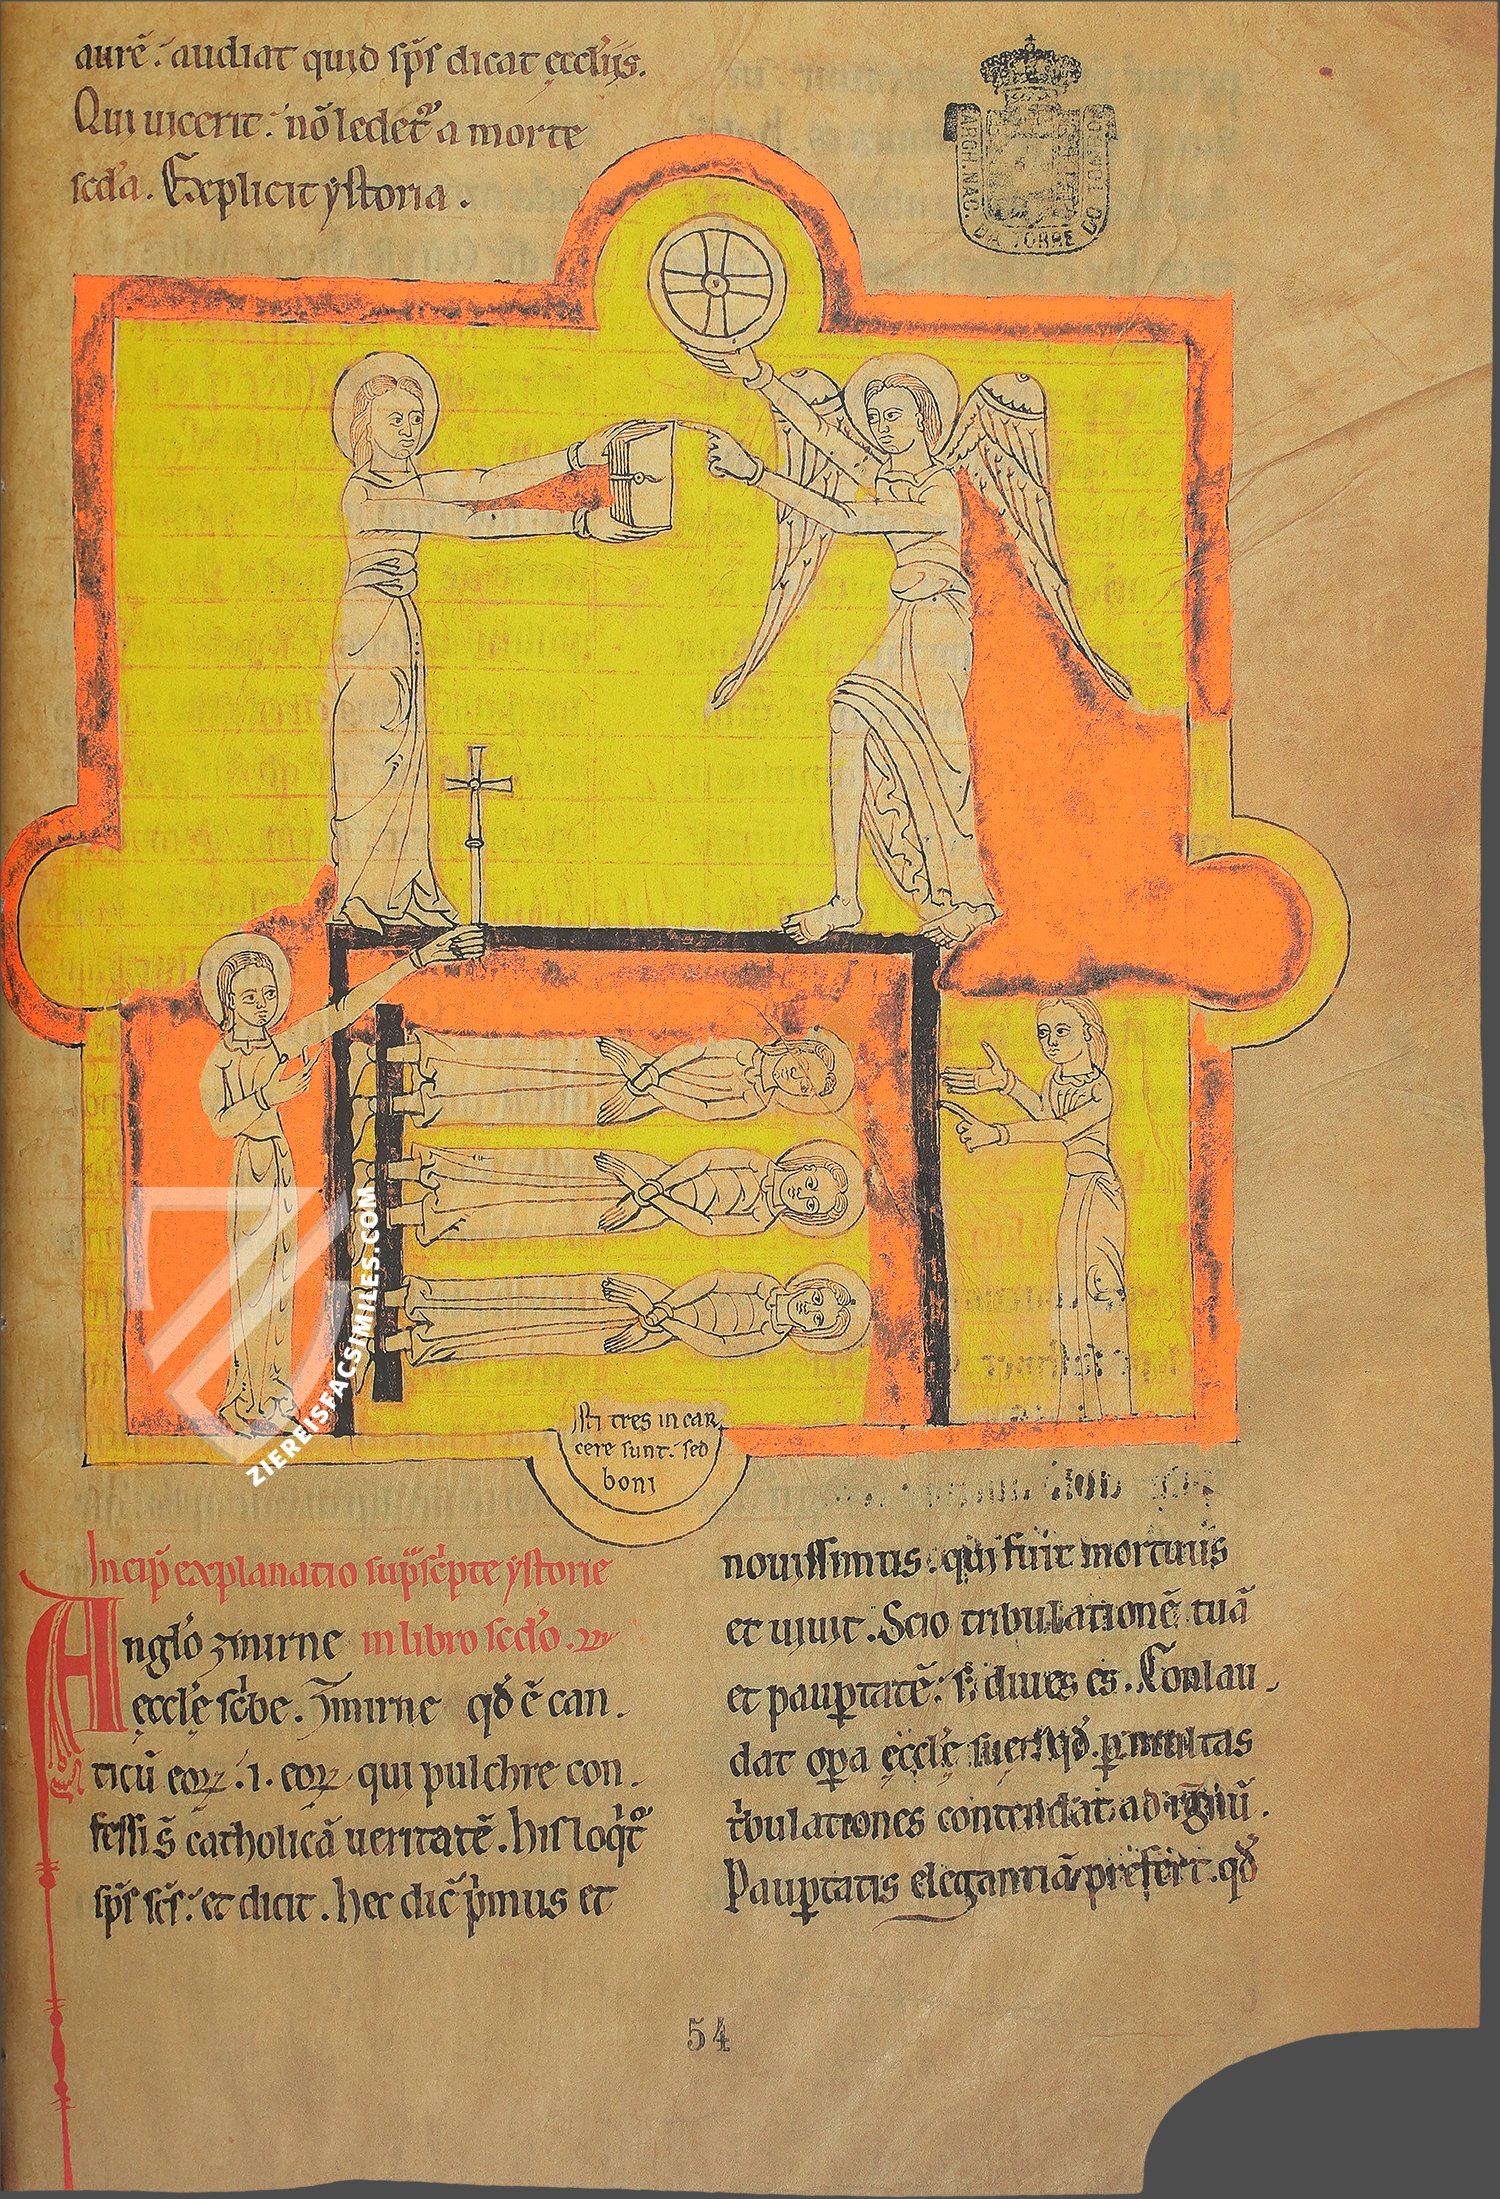 aurē. audiat quid sp̄s dicat ęccl'ijs.
Qui uicerit. nō ledet᷑ a morte
scd'a. Explicit ẏstoria.
ARCH. NAC. DA TORRE DO
isti tres in car
cere sunt. sed
boni
Incip̄ explanatio sup̄sc'pte ẏstorie
Anglo zmirne in libro scd'o.
ęccl'ę sc'be. Zmirne qđ ē can.
ticū eoꝝ .i. eoꝝ qui pulchre con.
fessi s̄ catholicā ueritatē. his loq't᷑
sp̄s sc̄s. et dicit. hec dic̄ p'mus et
nouissimus. qui fuit mortuus
et uiuit. Scio tribulationē tuā
et pauꝑtatē. s; diues es. Conlau.
dat oꝑa ęccl'ę suę qđ. ꝑ multas
t'bulationes contendat ad rḡnū.
Pauꝑtatis elegantiā prefert. qđ
54
ZIEREISFACSIMILES.COM